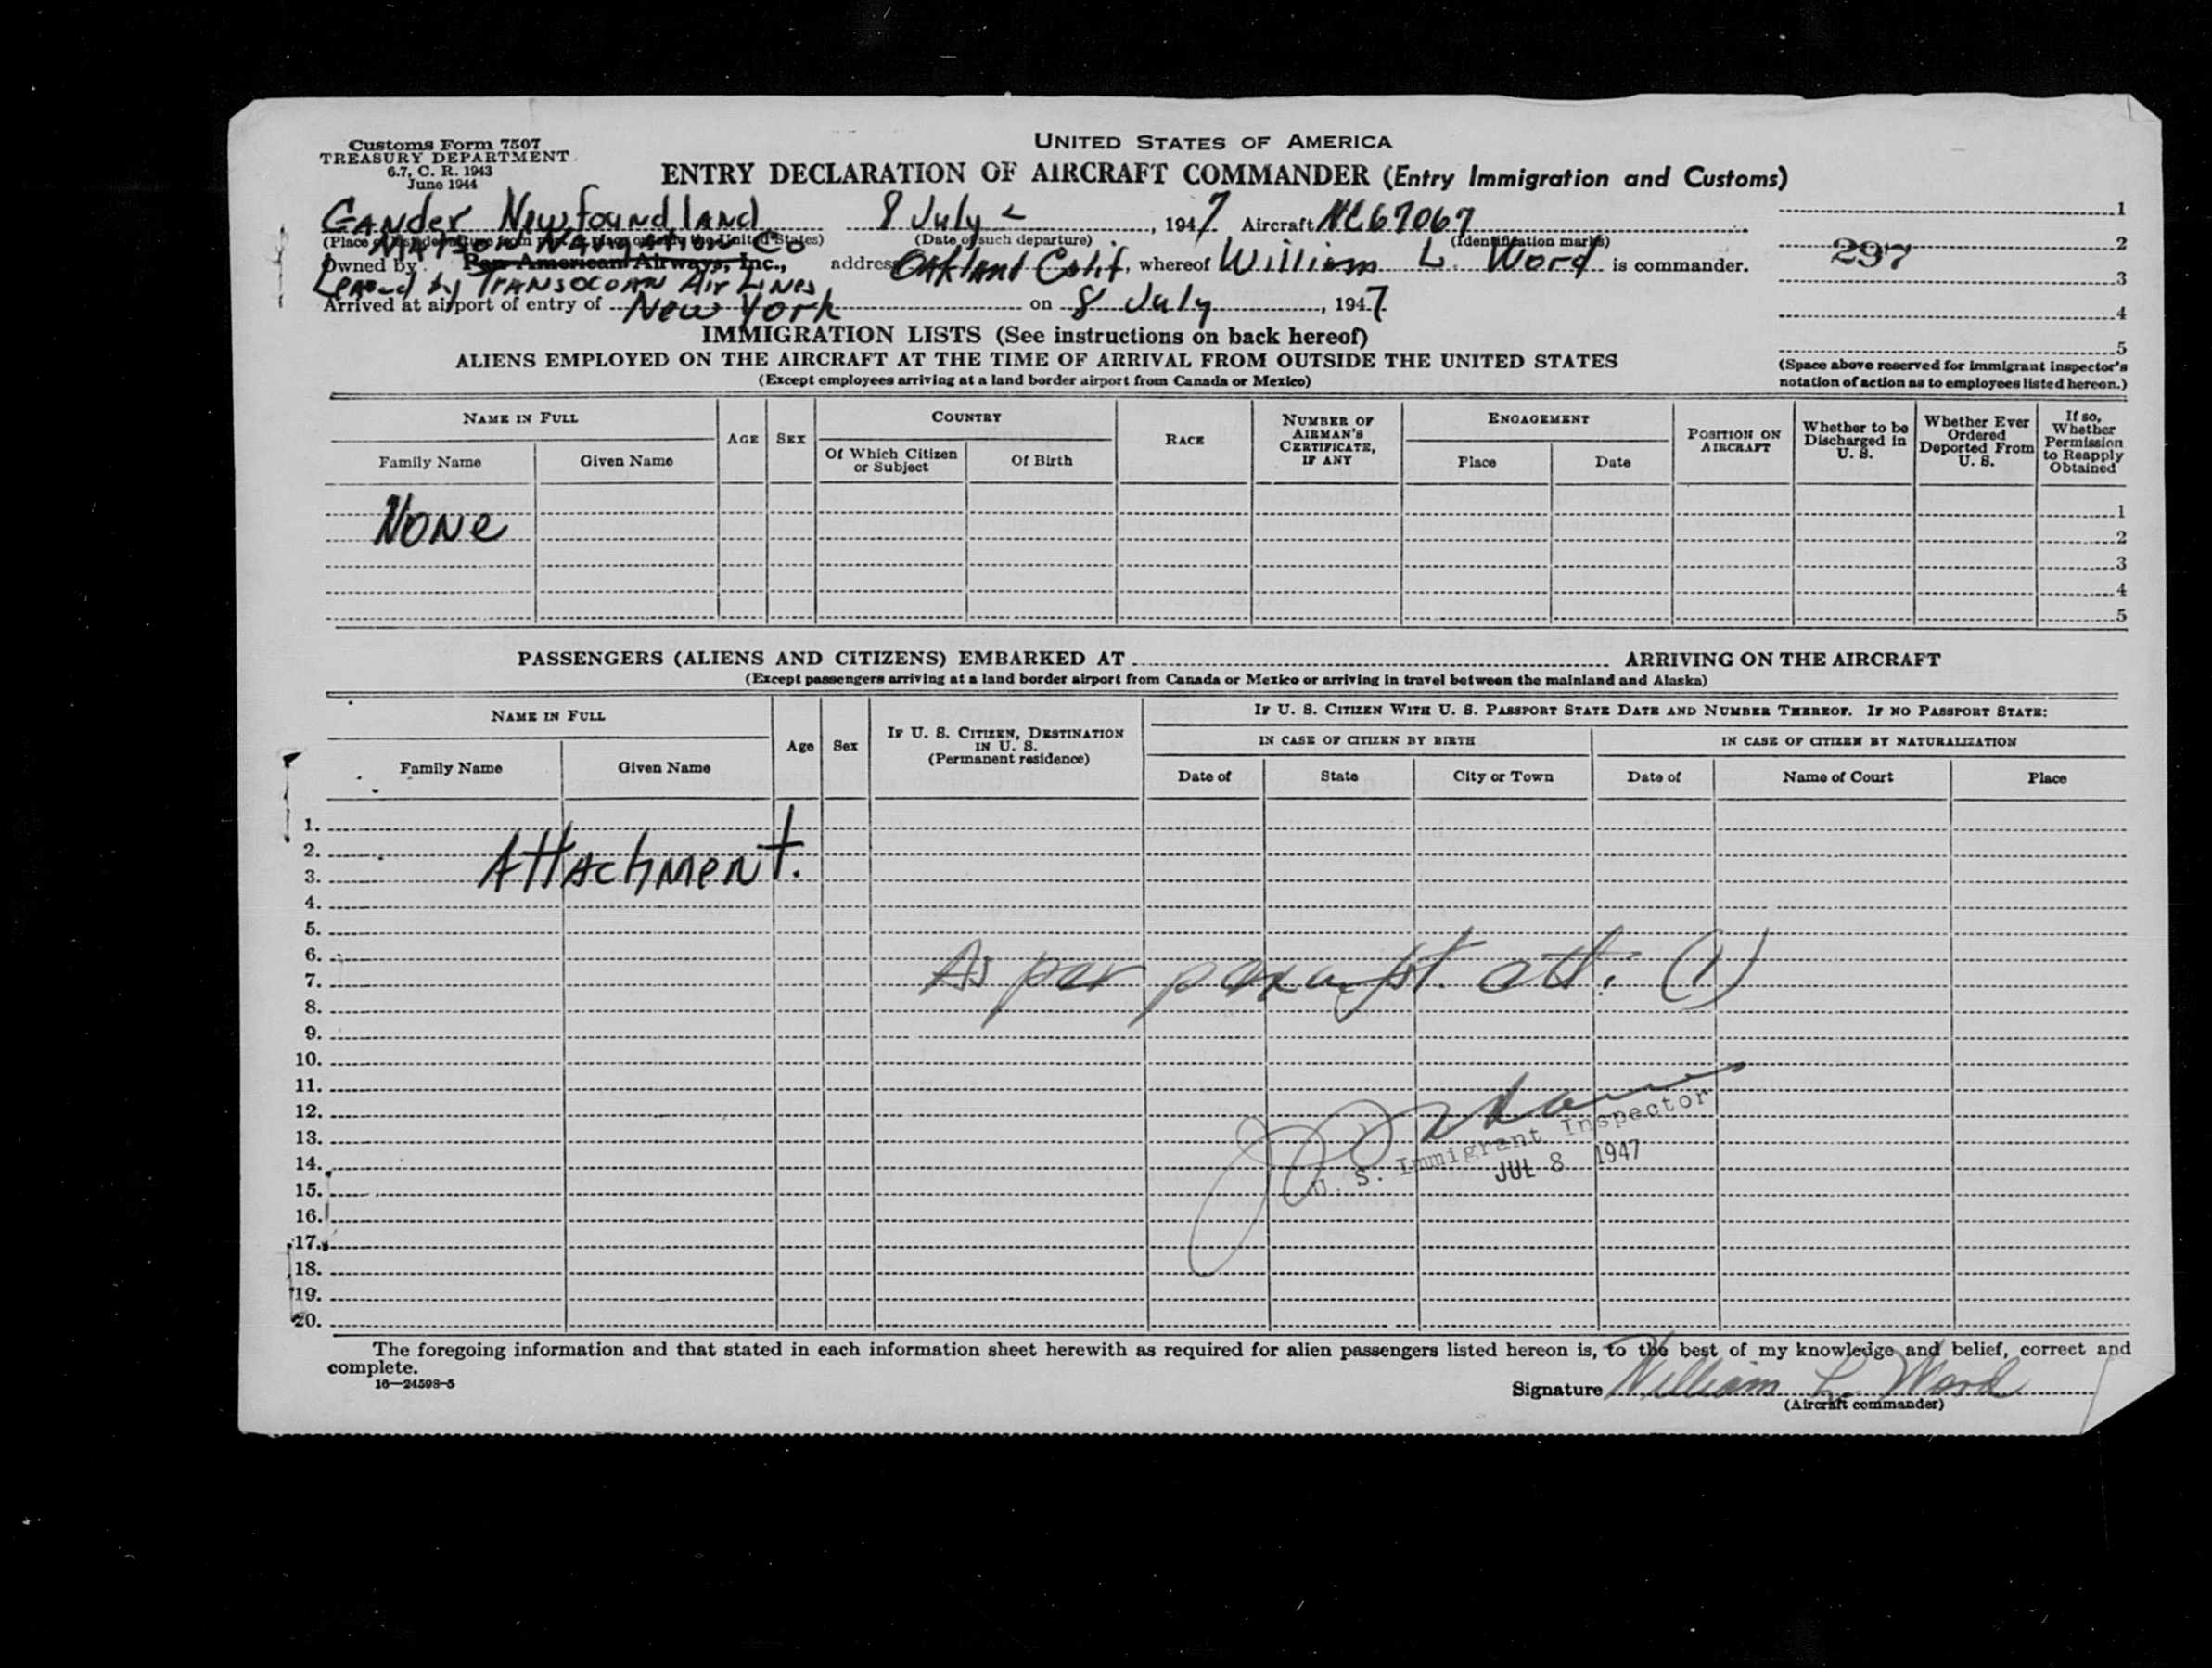 Customs Form 7507
TREASURY DEPARTMENT
6.7, C. R. 1943
June 1944
UNITED STATES OF AMERICA
ENTRY DECLARATION OF AIRCRAFT COMMANDER (Entry Immigration and Customs)
Gander Newfoundland 8 July , 1947 Aircraft NC67067
(Place of last departure from port or place outside the United States) (Date of such departure) (Identification marks)
Matson Navigation Co
Owned by Pan American Airways, Inc., address Oakland Calif, whereof William L. Word is commander.
Leased by Transocean Air Lines
Arrived at airport of entry of New York on 8 July , 1947
1
2
297
3
4
5
(Space above reserved for immigrant inspector's
notation of action as to employees listed hereon.)
IMMIGRATION LISTS (See instructions on back hereof)
ALIENS EMPLOYED ON THE AIRCRAFT AT THE TIME OF ARRIVAL FROM OUTSIDE THE UNITED STATES
(Except employees arriving at a land border airport from Canada or Mexico)
NAME IN FULL
Family Name Given Name
AGE SEX
COUNTRY
Of Which Citizen or Subject Of Birth
RACE
NUMBER OF AIRMAN'S CERTIFICATE, IF ANY
ENGAGEMENT
Place Date
POSITION ON AIRCRAFT
Whether to be Discharged in U. S.
Whether Ever Ordered Deported From U. S.
If so, Whether Permission to Reapply Obtained
1
None
2
3
4
5
PASSENGERS (ALIENS AND CITIZENS) EMBARKED AT ARRIVING ON THE AIRCRAFT
(Except passengers arriving at a land border airport from Canada or Mexico or arriving in travel between the mainland and Alaska)
NAME IN FULL
Family Name Given Name
Age Sex
IF U. S. CITIZEN, DESTINATION IN U. S.
(Permanent residence)
IF U. S. CITIZEN WITH U. S. PASSPORT STATE DATE AND NUMBER THEREOF. IF NO PASSPORT STATE:
IN CASE OF CITIZEN BY BIRTH IN CASE OF CITIZEN BY NATURALIZATION
Date of State City or Town Date of Name of Court Place
1.
2.
Attachment.
3.
4.
5.
6.
As per att. (1)
7.
8.
9.
10.
11.
12.
13.
U. S. Immigrant Inspector
14.
JUL 8 1947
15.
16.
17.
18.
19.
20.
The foregoing information and that stated in each information sheet herewith as required for alien passengers listed hereon is, to the best of my knowledge and belief, correct and
complete.
16—24598-5
Signature William L. Word
(Aircraft commander)